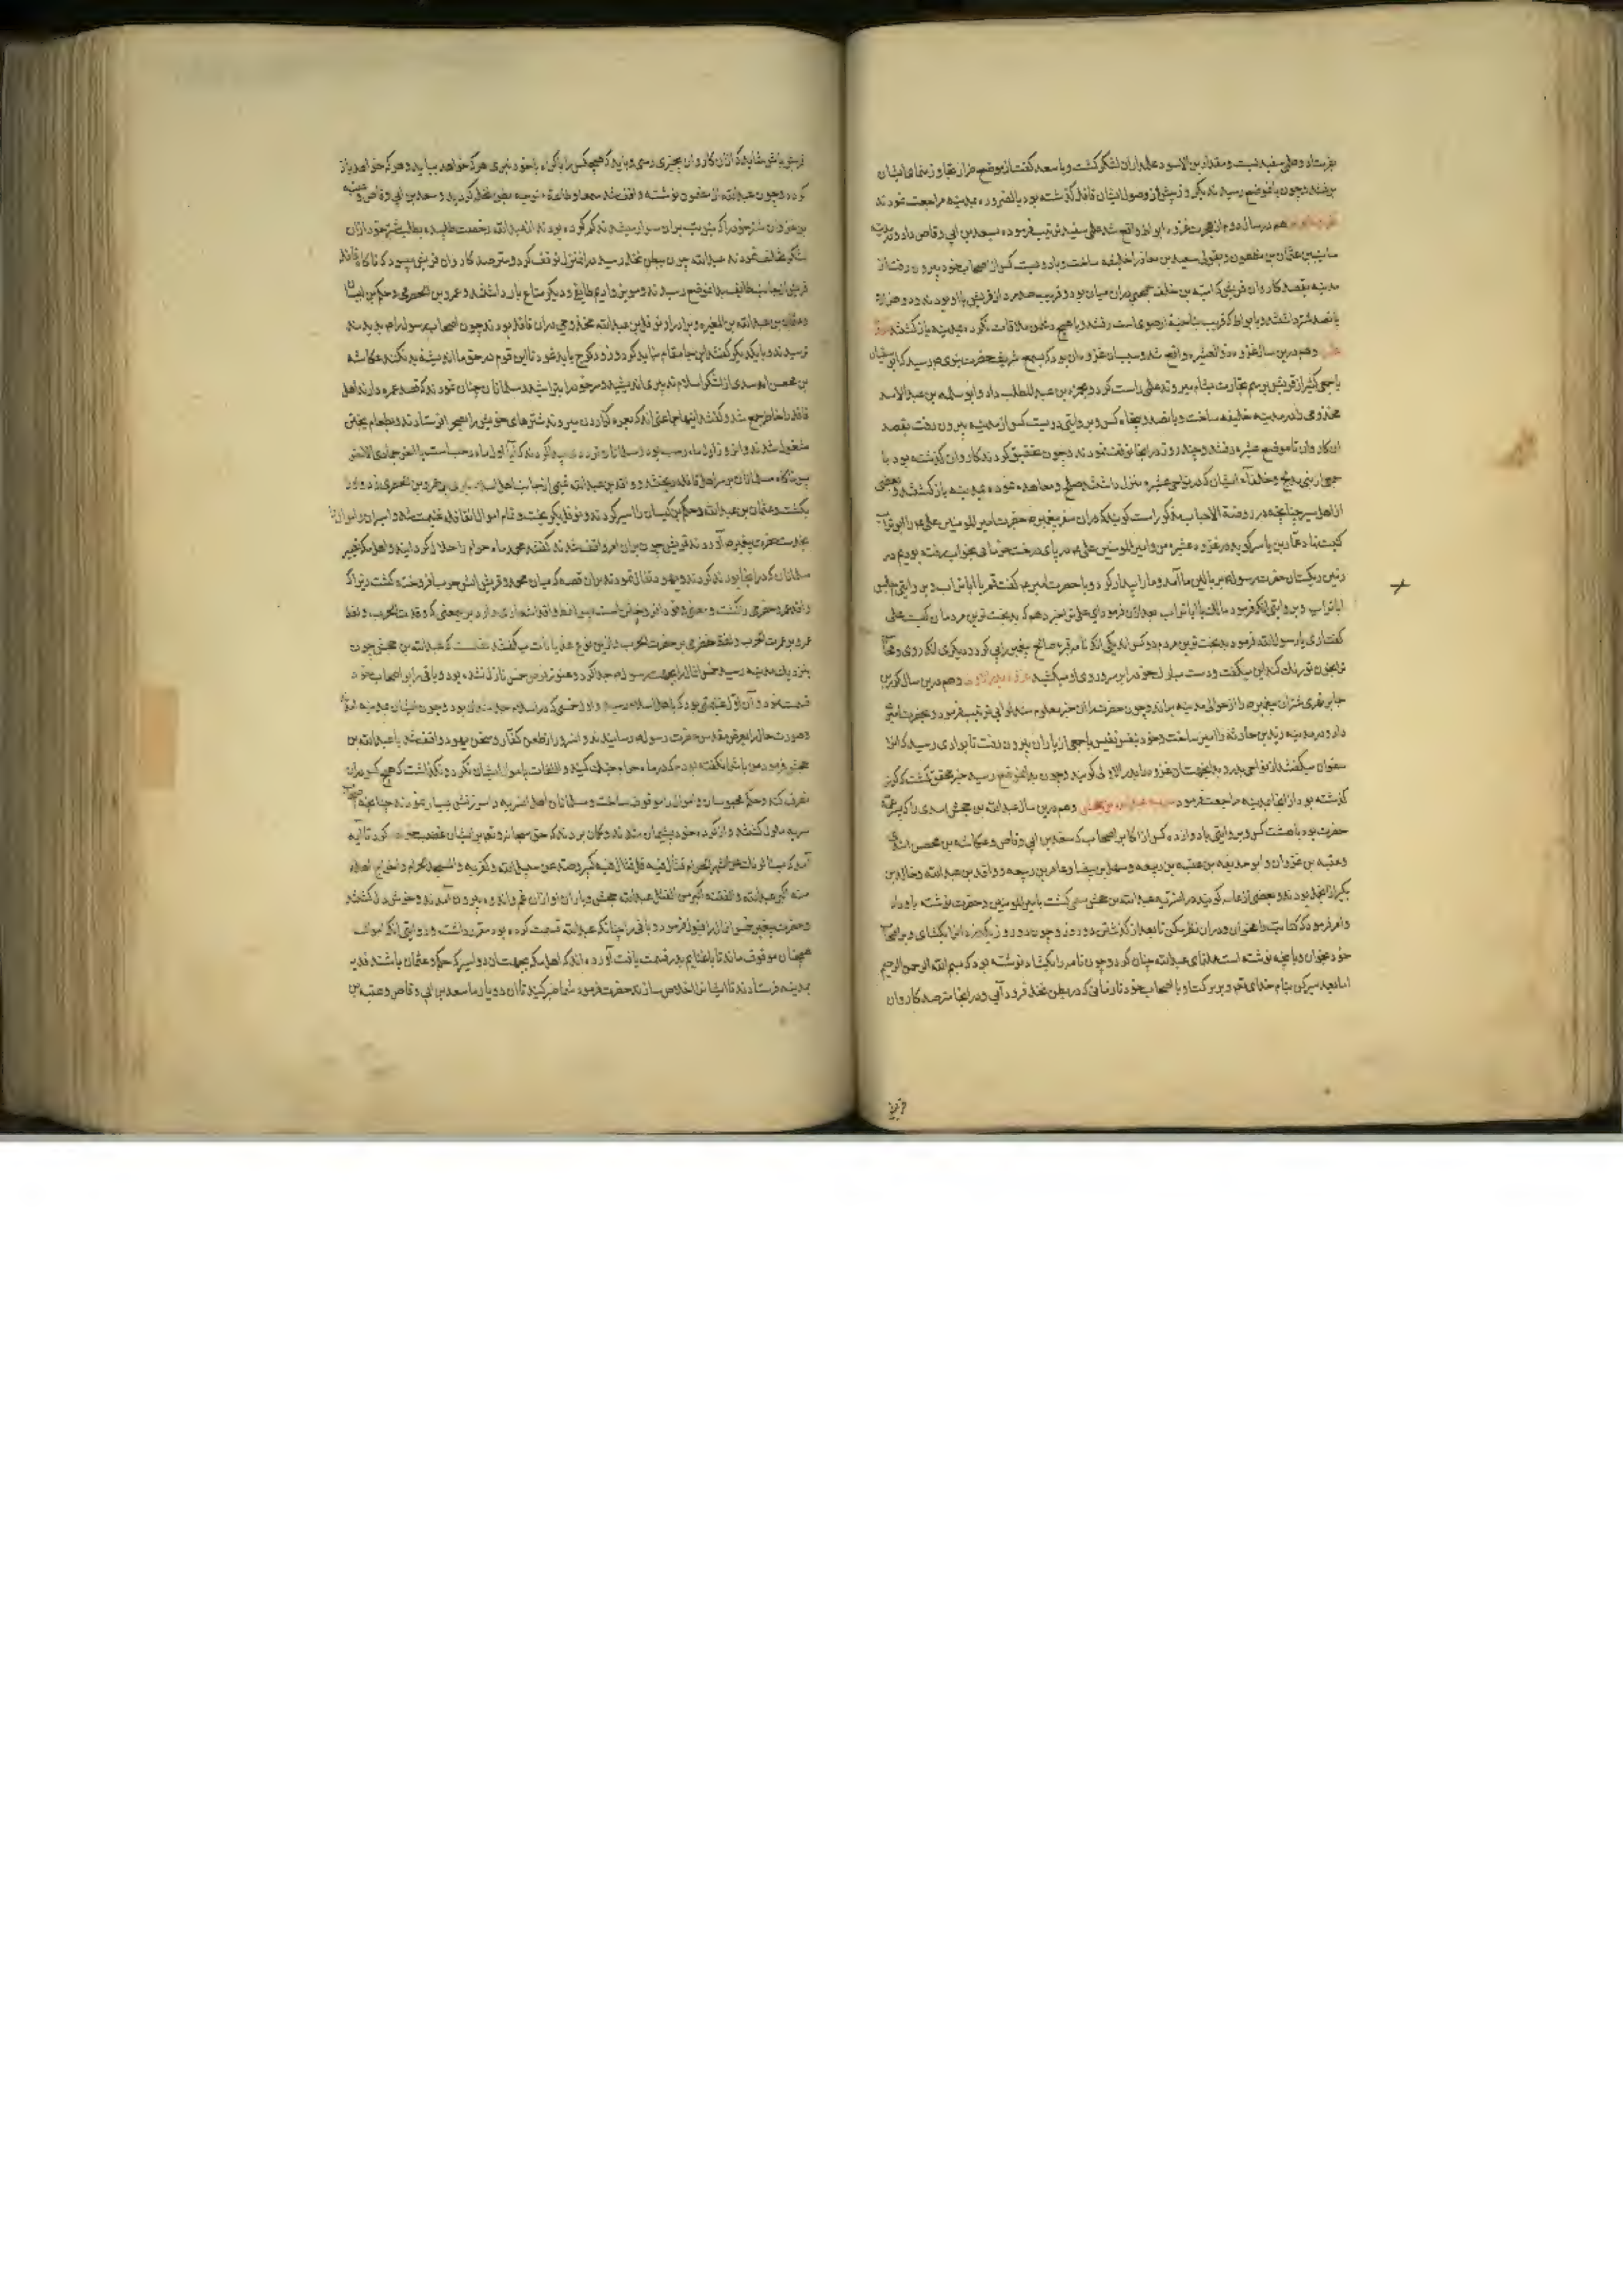 بفرستاد وعلمی سفید ببست ومقداد بن الاسود علمدار ان لشکر کشت وبا سعد کفت از موضع خرار تجاوز ننمای ایشان
برفتند وچون بانموضع رسیدند یکروز پیش از وصول ایشان قافله کذشته بود بالضروره بمدینه مراجعت نمودند
هم در سال دوم از هجرت غزوه ابواط واقع شد علمی سفید ترتیب فرموده بسعد بن ابی وقاص داد ودر مدینه
سایب بن عثمان بن مظعون وبقولی سعد بن معاذ را خلیفه ساخت وبا دویست کس از اصحاب خود بیرون رفت از
مدینه بقصد کاروان قریش که امیه بن خلف جمحی دران میان بود وقریب صد مرد از قریش با او بودند ودو هزار
پانصد شتر داشتند وبا بواط که قریب بناحیه رضوی است رفتند وبا هیچ دشمن ملاقات نکرده بمدینه باز کشتند
وهم درین سال غزوه ذوالعشیره واقع شد وسبب ان غزوه ان بود که بسمع شریف حضرت نبوی ص رسید که ابوسفیان
با جمعی کثیر از قریش برسم تجارت بشام میروند علمی راست کرد وبحمزه بن عبد المطلب داد وابو سلمه بن عبد الاسد
مخذومی را در مدینه خلیفه ساخت وبا صد وپنجاه کس وبروایتی دویست کس از مدینه بیرون رفت بقصد
ان کاروان تا موضع عشیره رفتند وچند روز در انجا توقف نمودند وچون تحقیق کردند کاروان کذشته بود با
جمعی از بنی مدلج وحلفاء ایشان که در نواحی عشیره منزل داشتند صلح ومعاهده نموده بمدینه باز کشتند وبعضی
از اهل سیر چنانچه در روضة الاحباب مذکور است کویند که دران سفر پیغمبر ص حضرت امیر المومنین علی ع را ابو تراب
کنیت نهاد عمار بن یاسر کوید در غزوه عشیره من وامیر المومنین علی ع در پای درخت خرما بخواب رفته بودیم در
زمین ریکستان حضرت رسول ص بر بالین ما آمد وما را بیدار کرد وبا حضرت امیر ع کفت قم یا اباتراب وبروایتی اجلس
اباتراب وبروایتی انکه فرمود مالک یا اباتراب بعد ازان فرمود ای علی ترا خبر دهم که بدبخت ترین مردمان کیست علی
کفت اری یا رسول الله فرمود بدبخت ترین مردم دو کس اند یکی انکه ناقه صالح پیغمبر را پی کرد ودیکری انکه روی ومحاسن
ترا بخون تو رنک کند این میکفت ودست مبارک خود را بر سر وروی او میکشید غزوه بدر الاولی وهم درین سال کرز بن
جابر فهری شتران پیغمبر ص را از حوالی مدینه براند وچون حضرت را این خبر معلوم شد لوایی ترتیب فرمود وبحضرت امیر
داد ودر مدینه زید بن حارثه را امیر ساخت وخود بنفس نفیس با جمعی از یاران بیرون رفت تا بوادی رسید که انرا
سفوان میکفتند از نواحی بدر وبدینجهت ان غزوه را بدر الاولی کویند وچون بدانموضع رسید خبر محقق کشت که کرز
کذشته بود از انجا بمدینه مراجعت فرمود سریه عبد الله بن جحش وهم درین سال عبد الله بن جحش اسدی را که پسر عمه
حضرت بود با هشت کس وبروایتی با دوازده کس از اکابر اصحاب که سعد بن ابی وقاص وعکاشه بن محصن اسدی
وعتبه بن غزوان وابو حذیفه بن عتبه بن ربیعه وسهل بن بیضا وعامر بن ربیعه وواقد بن عبد الله وخالد بن
بکیر از انجمله بودند وبعضی از علما کویند در انسریه عبد الله بن جحش مسمی کشت بامیر المومنین وحضرت نوشته باو داد
وامر فرمود که کتابت را مخوان ودران نظر مکن تا بعد از کذشتن دو روز وچون دو روز بکذرد انرا بکشای وبر اصحاب
خود بخوان وبا نچه نوشته است عمل نمای عبد الله چنان کرد وچون نامه را بکشاد نوشته بود که بسم الله الرحمن الرحیم
اما بعد سیر کن بنام خدای تع وبربرکت او با اصحاب خود تا زمانی که در بطن نخله فرود آیی ودر انجا مترصد کاروان
قریش باش شاید که ازان کاروان بخیری رسی وباید که هیچکس را باکراه با خود نبری هر که خواهد بیاید وهر که خواهد باز
کردد وچون عبد الله از مضمون نوشته واقف شد سمعا وطاعة متوجه بطن نخله کردید وسعد بن ابی وقاص وعتبه
بن غزوان شتر خود را که بنوبت بران سوار میشدند کم کرده بودند از عبد الله رخصت طلبیده بطلب شتر خود ازان
لشکر تخلف نمودند عبد الله چون ببطن نخله رسید در انمنزل توقف کرد ومترصد کاروان قریش میبود که ناکاه قافله
قریش از جانب طایف بدانموضع رسیدند ومویز وادیم طایفی ودیکر متاع بار داشتند وعمرو بن الحضرمی وحکم بن کیسان
وعثمان بن عبد الله بن المغیره وبرادر او نوفل بن عبد الله مخذومی دران قافله بودند چون اصحاب رسول را ص بدیدند
ترسیدند وبا یکدیکر کفتند این جا مقام نباید کرد وزود کوچ باید نمود تا این قوم در حق ما اندیشه بد نکنند عکاشه
بن محصن اسدی از لشکر اسلام تدبیری اندیشید وسر خود را بتراشید ومسلمانان چنان نمودند که قصد عمره دارند اهل
قافله را خاطر جمع شد وکفتند اینها جماعتی اند که بعمره کزاردن میروند شترهای خویش را بصحرا فرستادند وبطعام پختن
مشغول شدند وانروز اول ماه رجب بود ومسلمانان تردد میکردند که آیا اول ماه رجب است یا اخر جمادی الاخر
پس ناکاه مسلمانان بر سر اهل قافله ریختند وواقد بن عبد الله تیری از جانب اهل اسلام بر عمرو بن الحضرمی زد واو را
بکشت وعثمان بن عبد الله وحکم بن کیسان را اسیر کردند ونوفل بکریخت وتمام اموال انقافله غنیمت شد واسیران واموال را
بخدمت حضرت پیغمبر ص آوردند قریش چون بران امر واقف شدند کفتند محمد ماه حرام را حلال کردانید واهل مکه تعییر
مسلمانان که در انجا بودند کردند ویهود تفال نمودند بران قصه که میان محمد وقریش اتش حرب افروخته کشت زیرا که
واقد عمرو حضرمی را کشت
عمرو عمرت الحرب ولفظ حضرمی بر حضرت الحرب وازین نوع هذیانات میکفتند نقلست که عبد الله بن جحش چون
بنزدیک مدینه رسید خمس انمال را بجهت رسول ص جدا کرد وهنوز فرض خمس نازل نشده بود وباقی را بر اصحاب خود
قسمت نمود وآن اول غنیمتی بود که باهل اسلام رسید واول خمسی که در اسلام جدا شد ان بود وچون ایشان بمدینه امدند
وصورت حال را بعرض مقدس حضرت رسول ص رسانیدند وانسرور از طعن کفار وسخن یهود واقف شد با عبد الله بن
جحش فرمود من با شما نکفته بودم که در ماه حرام جنک کنید والتفات باموال ایشان نکرد ونکذاشت که هیچ کس دران
تصرف کند وحکم محبوسان واموال را موقوف ساخت ومسلمانان اهل انسریه را سرزنش بسیار نمودند چنانچه اصحاب
سریه ملول کشتند واز کرده خود پشیمان شدند وکمان بردند که حق سبحانه وتعالی بر ایشان غضب خواهد کرد تا آیه
آمد که یسالونک عن الشهر الحرام قتال فیه قل قتال فیه کبیر وصد عن سبیل الله وکفر به والمسجد الحرام واخراج اهله
منه اکبر عند الله والفتنه اکبر من القتل عبد الله جحش ویاران او ازان غم واندوه بیرون آمدند وخوش دل کشتند
وحضرت پیغمبر خمس ان مال را قبول فرمود وباقی را چنانکه عبد الله قسمت کرده بود مقرر داشت وروایتی انکه اموال
همچنان موقوف ماند تا با غنایم بدر قسمت یافت آورده اند که اهل مکه بجهت ان دو اسیر که حکم وعثمان باشند فدیه
بمدینه فرستادند تا ایشان را خلاص سازند حضرت فرمود شما صبر کنید تا ان دو یار ما سعد بن ابی وقاص وعتبه بن